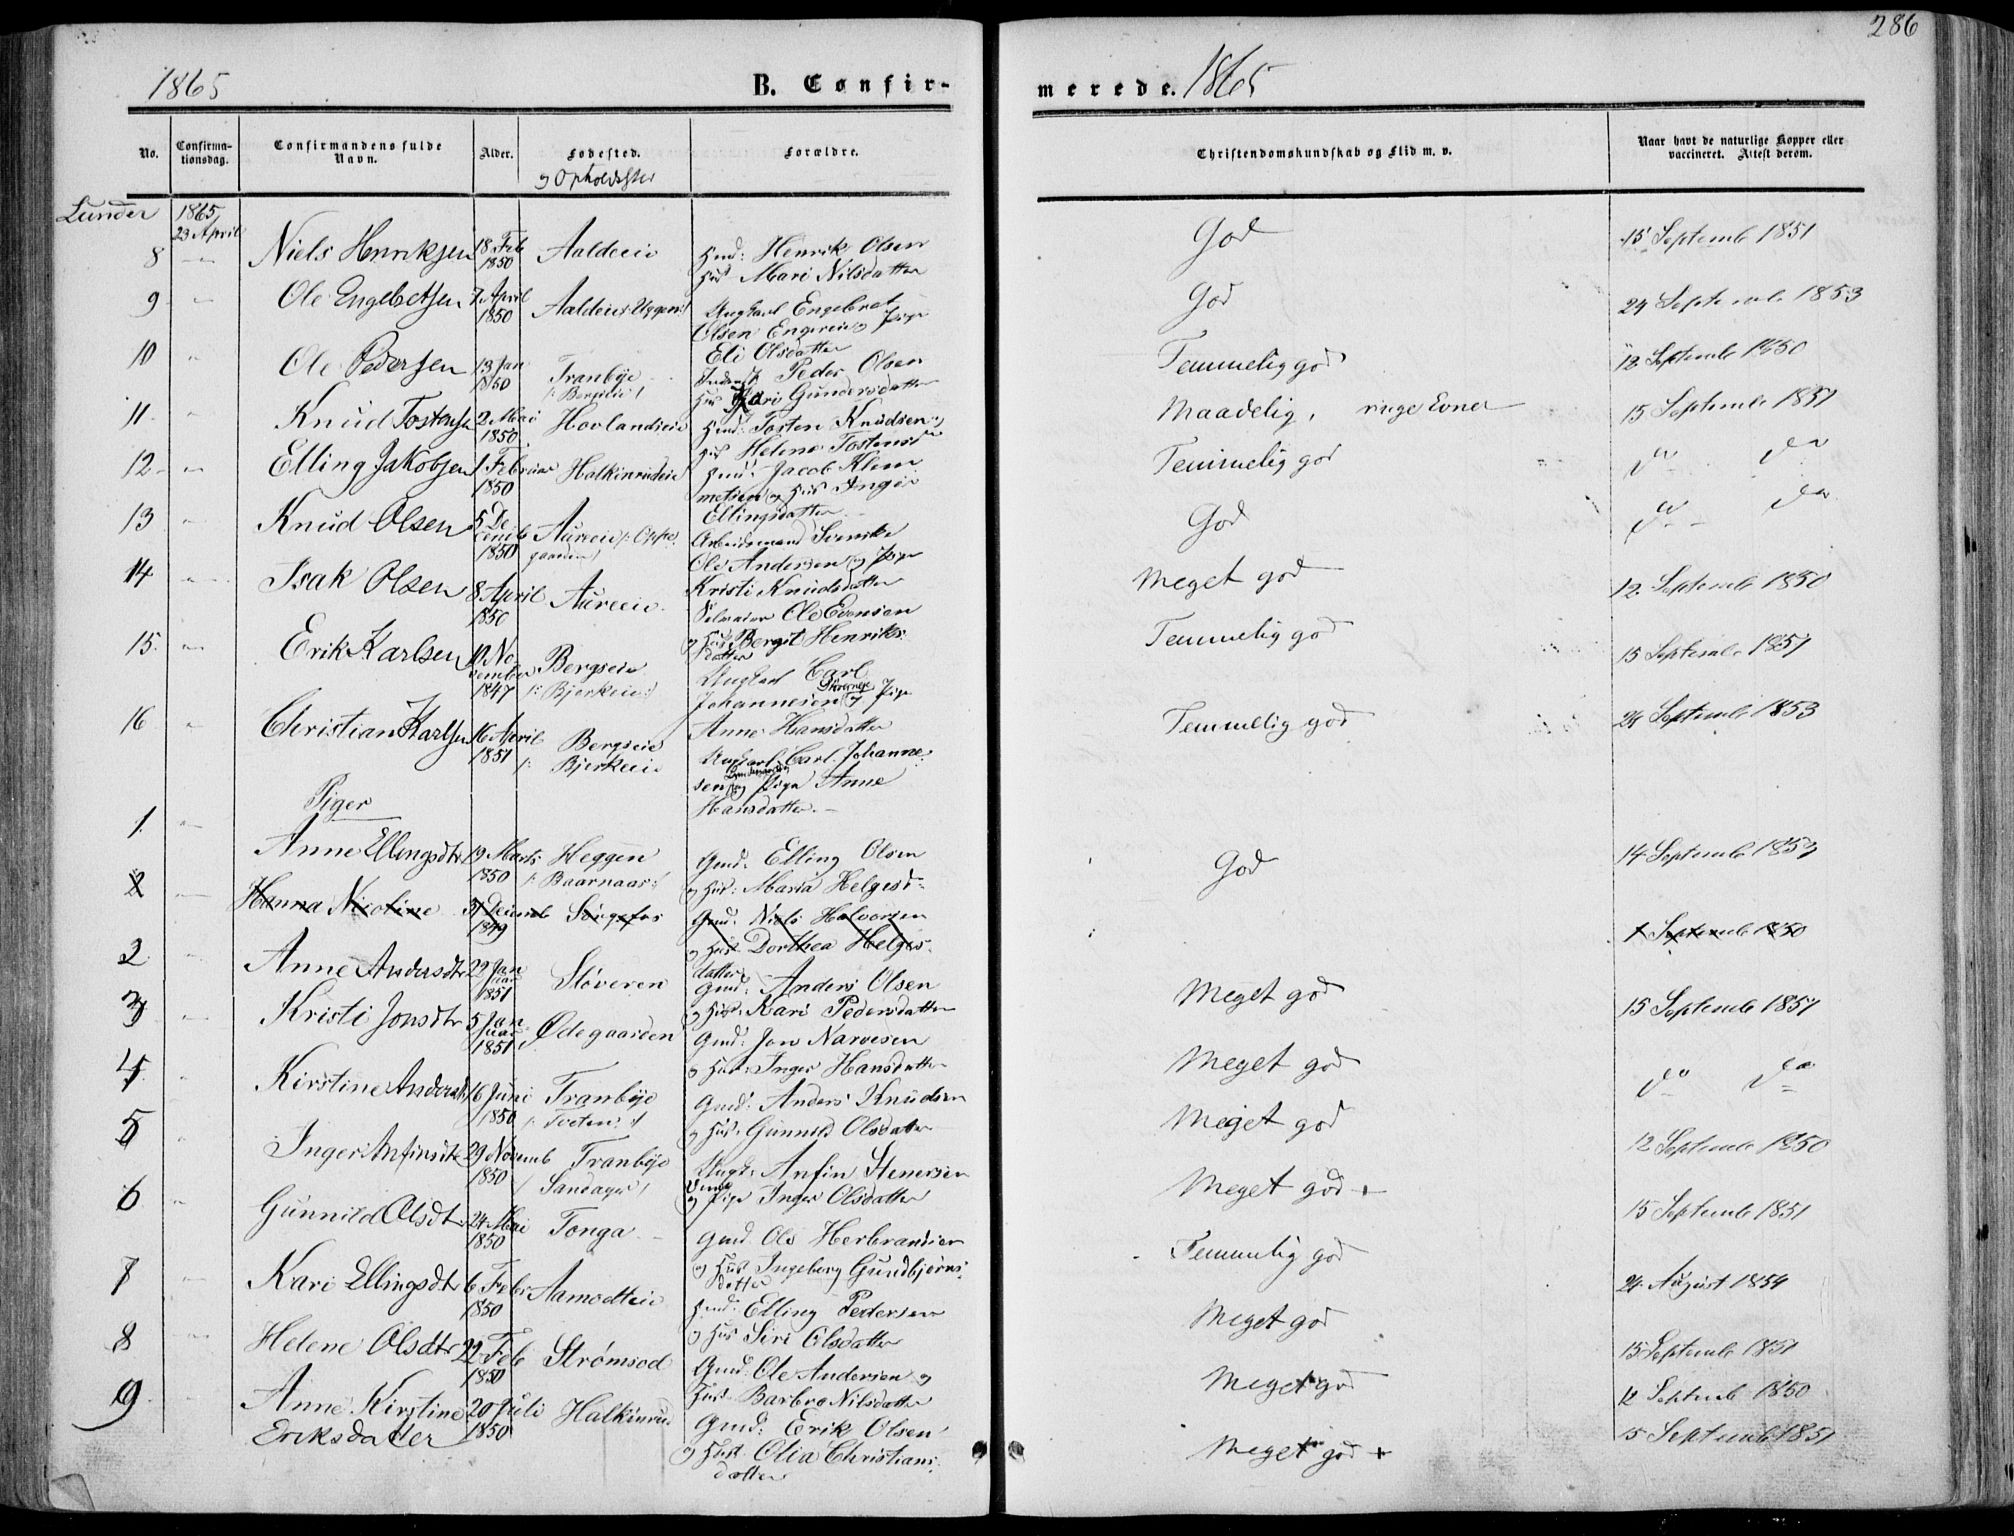 286
1865 B. Confir-
merede. 1865
No. Confirma-tionsdag. Confirmandens fulde Navn. Alder. Fødested. Forældre.
og Opholdssted
Christendomskundskab og Flid m. v. Naar havt de naturlige Kopper eller vaccineret. Attest derom.
Lunder 1865 23 April
8 Niels Henriksen 18 Feb 1850 Aaldeeie Hmd: Henrik Olsen
Hus Mari Nilsdatter God 15 Septemb 1851
9 Ole Engebretsen 7 April 1850 Aaldeie Ungkarl Engebret
Olsen og Pige
Eli Olsdatter God 24 Septemb 1853
10 Ole Pedersen 13 Jan 1850 Tranbye Peder Olsen
Hus Kari Gundersdatter Temmelig god 12 Septemb 1850
11. Knud Tostensen 2 Mai 1850 Hovlandseie Hmd: Tosten Knudsen og
Hus Helene Tostensd Maadelig, ringe Evner 15 Septemb 1851
12 Elling Jakobsen 1 Februar 1850 Halkinrudeie Hmd: Jacob Klem
metsen og Hus Ingri
Ellingsdatter Temmelig god do do
13 Knud Olsen 5 Decemb 1850 Aureeie /: Oppe
gaarden / Arbeidsmand Svenske
Ole Andersen og Pige
Kristi Knudsdatter God do do
14 Isak Olsen 8 April 1850 Aureeie Selveier Ole Evensen
og Hus Bergit Henriks
datter Meget god 12 Septemb 1850
15. Erik Karlsen November 1847 Bergseie
/: Bjerkeie :/ Ungkarl Carl
Johannesen og Pige
Anne Hansdatter Temmelig god 15 Septemb 1851
16 Christian Karlsen 16 April 1851 Bergseie
/: Bjerkeie Ungkarl Carl Johanne
sen og Pige Anne
Hansdatter. Temmelig god 24 Septemb 1853
Piger
1. Anne Ellingsdtr 19 Marts 1850 Heggen
/: Baarnaas :/ Gmd: Elling Olsen
og Hus: Maria Helgesd God 14 Septemb 1853
2 Hanna Nicoline Decemb 1849 Sørgefos Gmd: Niels Halvorsen
og Hus Dorthea Helges-
datter 1 Septemb 1850
2 Anne Andersdtr 22 Januar 1851 Støveren Gmd: Anders Olsen
og Hus: Kari Pedersdatter Meget god 15 Septemb 1851
3 Kristi Jonsdtr 5 Januar 1851 Ødegaarden Gmd: Jon Narvesen
og Hus: Inger Hansdatter Meget god do do
4 Kirstine Andersdtr 16 Juni 1850 Tranbye
/: Toeten :/ Gmd: Anders Knudsen
og Hus: Gunnild Olsdatter Meget god 12 Septemb 1850
5 Inger Anfinsdtr 29 Novemb 1850 Tranbye
/ Sandager / Ungk: Anfin Stenersen
og Pige Inger Olsdatter Meget god + 15 Septemb 1851
6 Gunnild Olsdtr 24 Mai 1850 Tonga Gmd. Ole Herbrandsen
og Hus Ingeborg Gundbjørns-
datter Temmelig god 24 August 1854
7 Kari Ellingsdtr 6 Febr 1850 Aamodteie Hmd: Elling Pedersen
og Hus Siri Olsdatter Meget god 15 Septemb 1851
8 Helene Olsdtr 22 Feb 1850 Strømsod Gmd: Ole Andersen og
Hus Barbro Nilsdatter Meget god 12 Septemb 1850
9 Anne Kirstine
Eriksdatter 20 Juli 1850 Halkinrud Gmd: Erik Olsen
og Hust. Olea Christians-
datter Meget god + 15 Septemb 1851